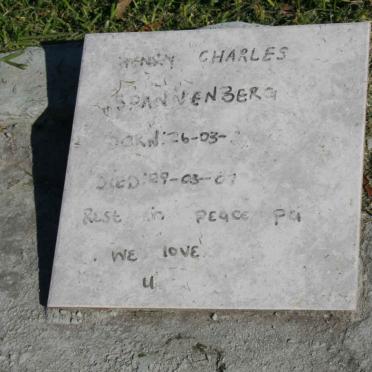 HENRY CHARLES
SPANNENBERG
BORN: 26-03-
DIED: 29-03-07
REST IN PEACE PA
WE LOVE
U